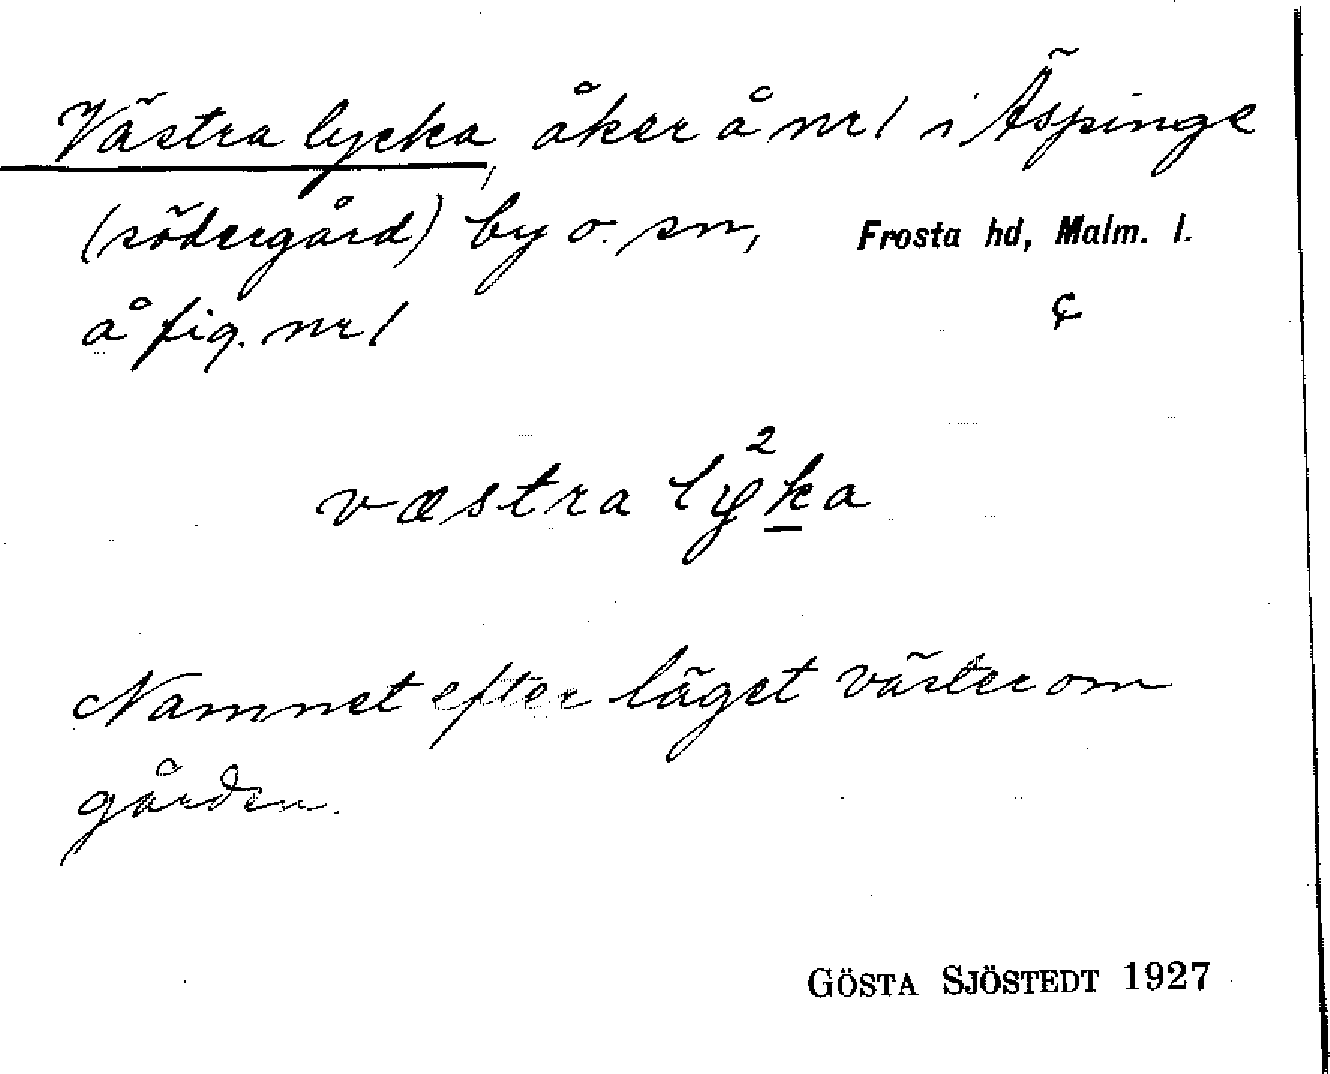 Västra lycka, åker å nr 1 i Äspinge
(södergård) by o. sn, Frosta hd, Malm. l.
å fig. nr 1 ¢
væstra ly²ka
Namnet efter läget väster om
gården.
GÖSTA SJÖSTEDT 1927